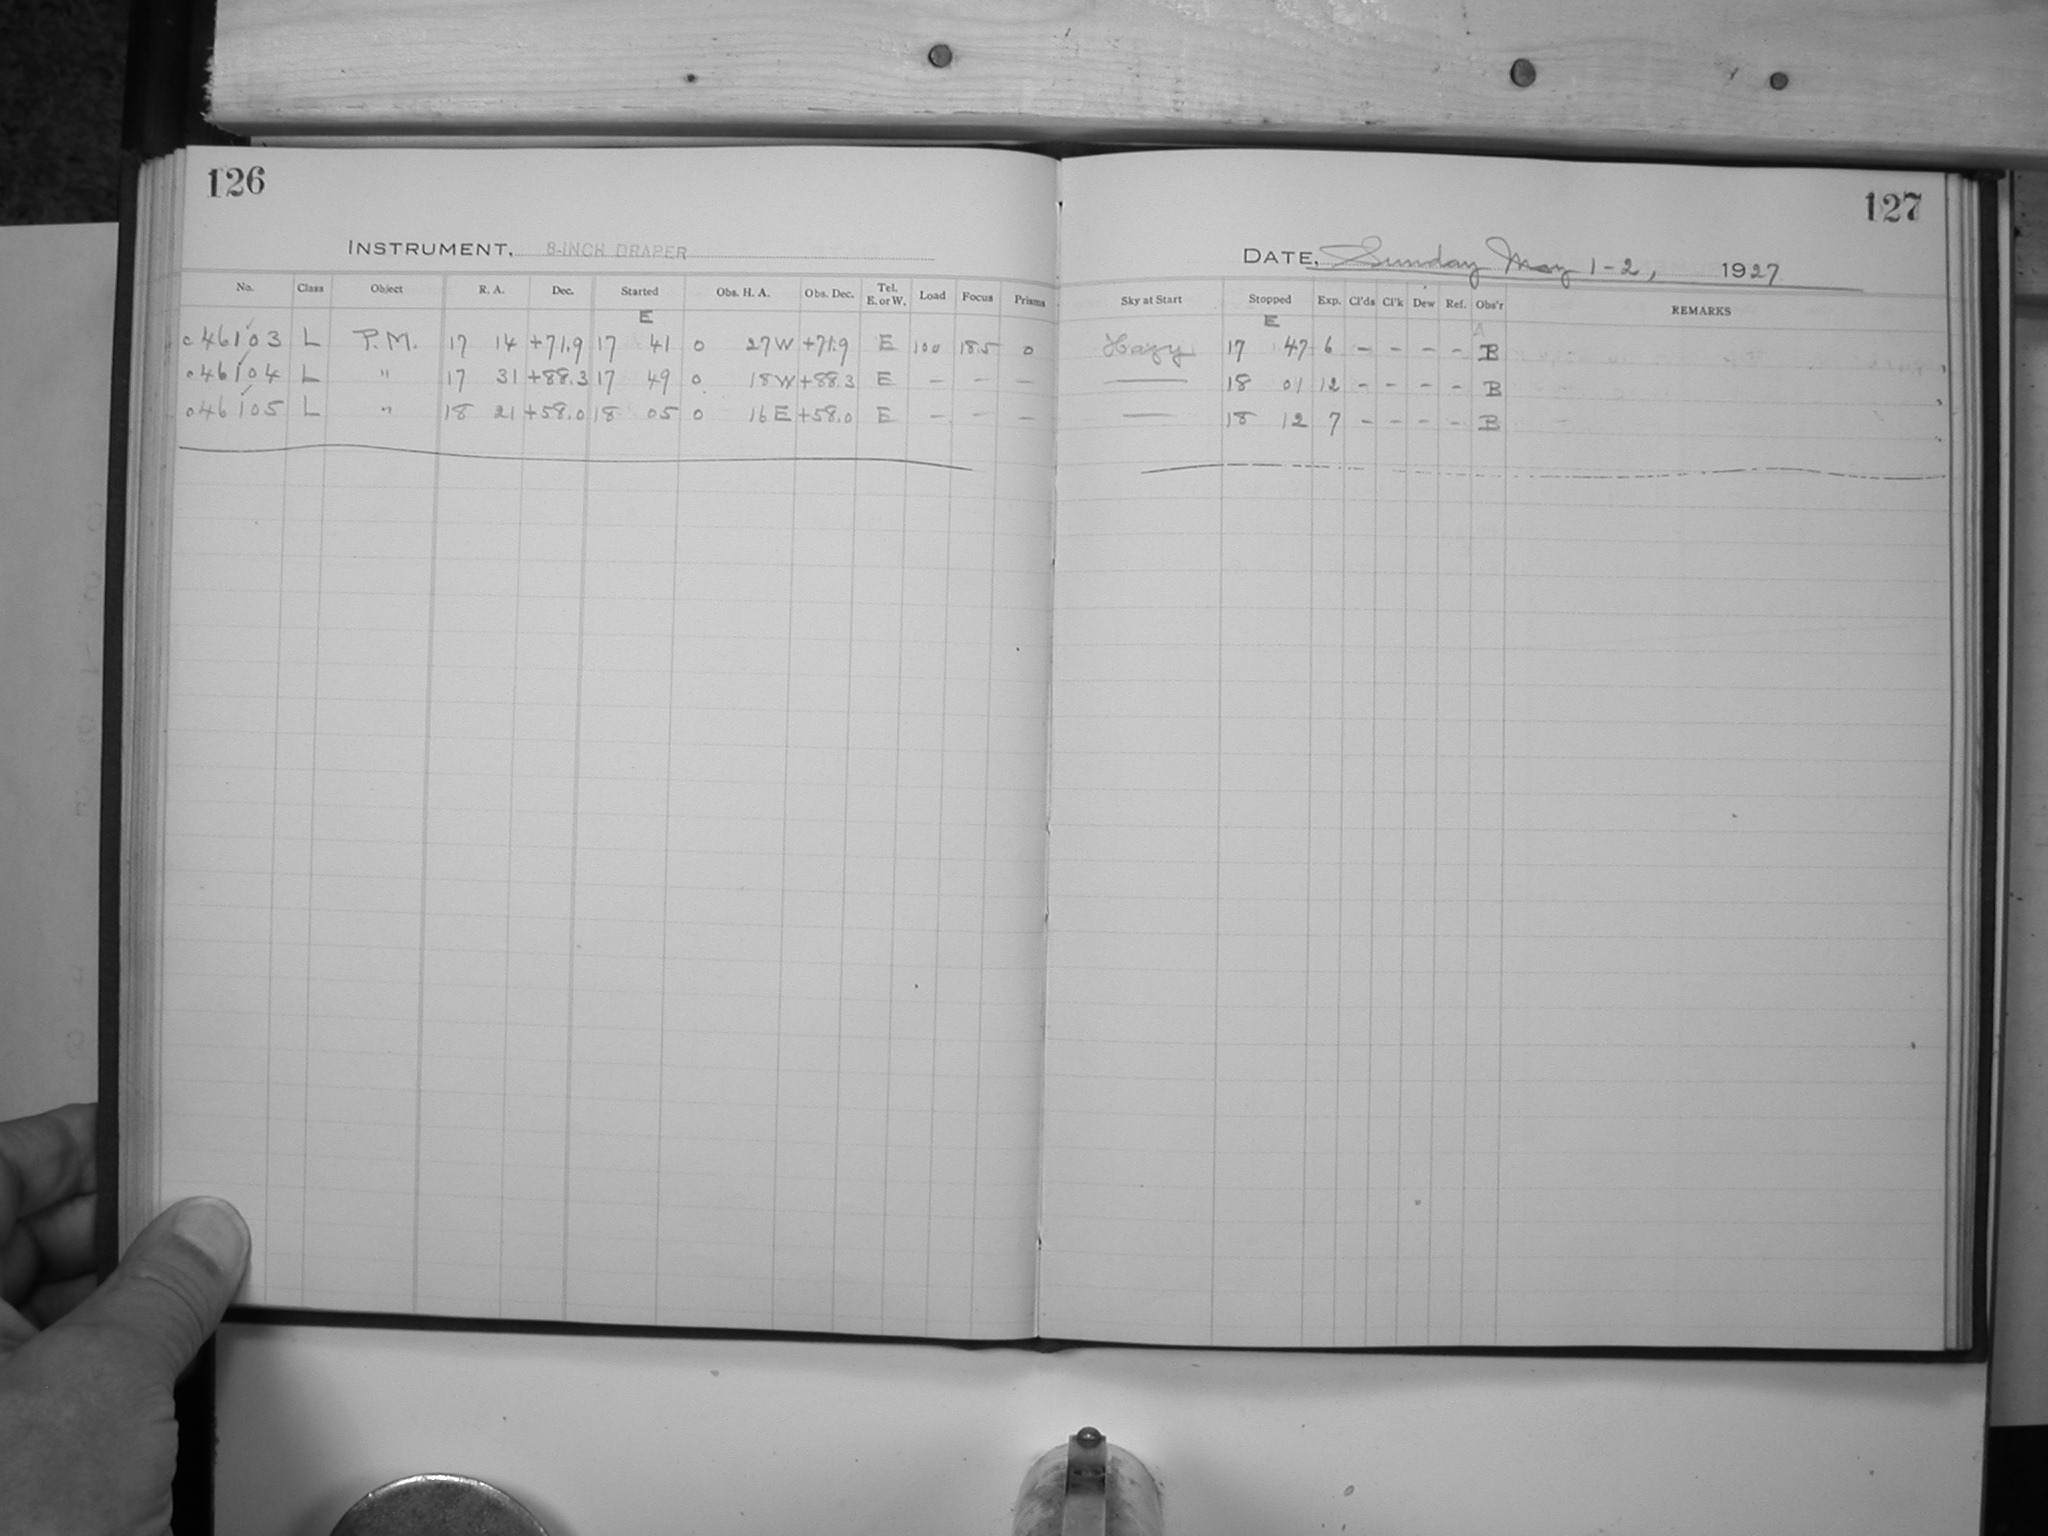 126
INSTRUMENT, 8-INCH DRAPER
No. Class Object R. A. Dec. Started Obs. H. A. Obs. Dec. Tel. E. or W. Load Focus Prisms
E
c 46103 L P.M. 17 14 +71.9 17 41 0 27W +71.9 E 100 18.5 0
c 46104 L " 17 31 +88.3 17 49 0 18W +88.3 E — — —
c 46105 L " 18 21 +58.0 18 05 0 16E +58.0 E — — —
127
DATE, Sunday May 1-2, 1927
Sky at Start Stopped Exp. Cl'ds Cl'k Dew Ref. Obs'r REMARKS
E
Hazy 17 47 6 - - - - B
—— 18 01 12 - - - - B
—— 18 12 7 - - - - B